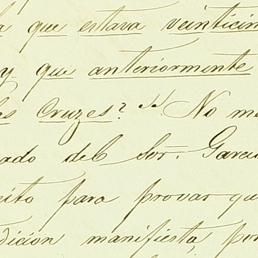 que estava veinticin
y que anteriormente
Cruzes? " No me
ado del Sor. Garcia
ito para provar qu
dicion manifiesta, por